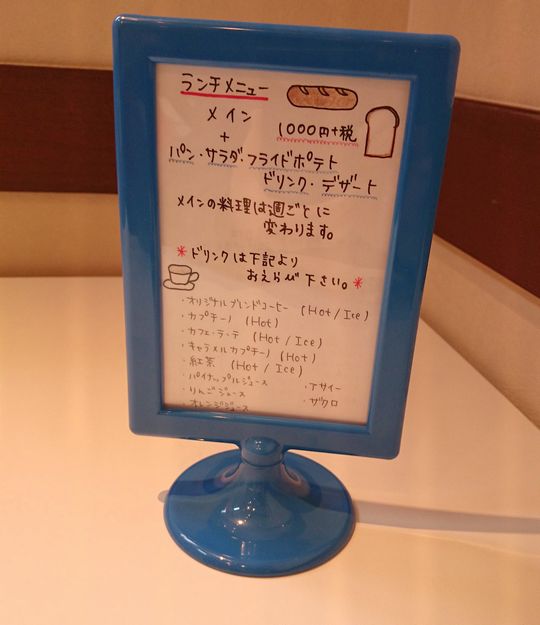 ランチメニュー
メイン
+
1000円+税
パン・サラダ・フライドポテト
ドリンク・デザート
メインの料理は週ごとに
変わります。
*ドリンクは下記より
おえらび下さい。*
・オリジナルブレンドコーヒー (Hot/Ice)
・カプチーノ (Hot)
・カフェ・ラ・テ (Hot / Ice)
・キャラメルカプチーノ (Hot)
・紅茶 (Hot / Ice)
・パイナップルジュース ・アサイー
・りんごジュース ・ザクロ
・オレンジジュース